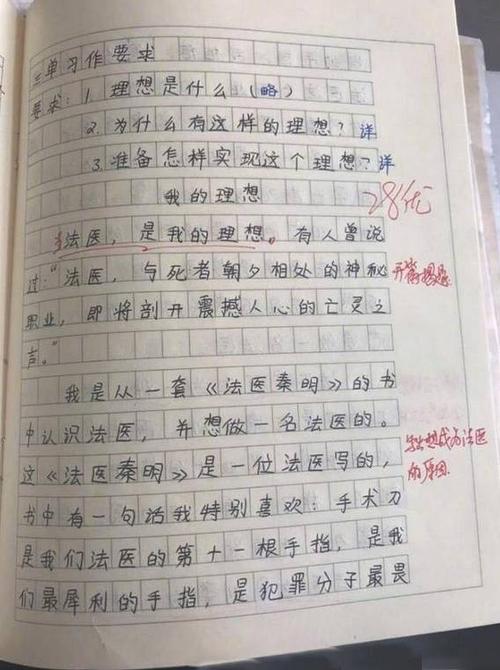 三单习作要求
要求：1.理想是什么（略）
2.为什么有这样的理想？详
3.准备怎样实现这个理想？详
我的理想
28优
法医，是我的理想。有人曾说
过："法医，与死者朝夕相处的神秘
开篇揭题
职业，即将剖开震撼人心的亡灵之
言。"
我是从一套《法医秦明》的书
中认识法医，并想做一名法医的。
想成为法医
这《法医秦明》是一位法医写的，
的原因
书中有一句话我特别喜欢：手术刀
是我们法医的第十一根手指，是我
们最犀利的手指，是犯罪分子最畏